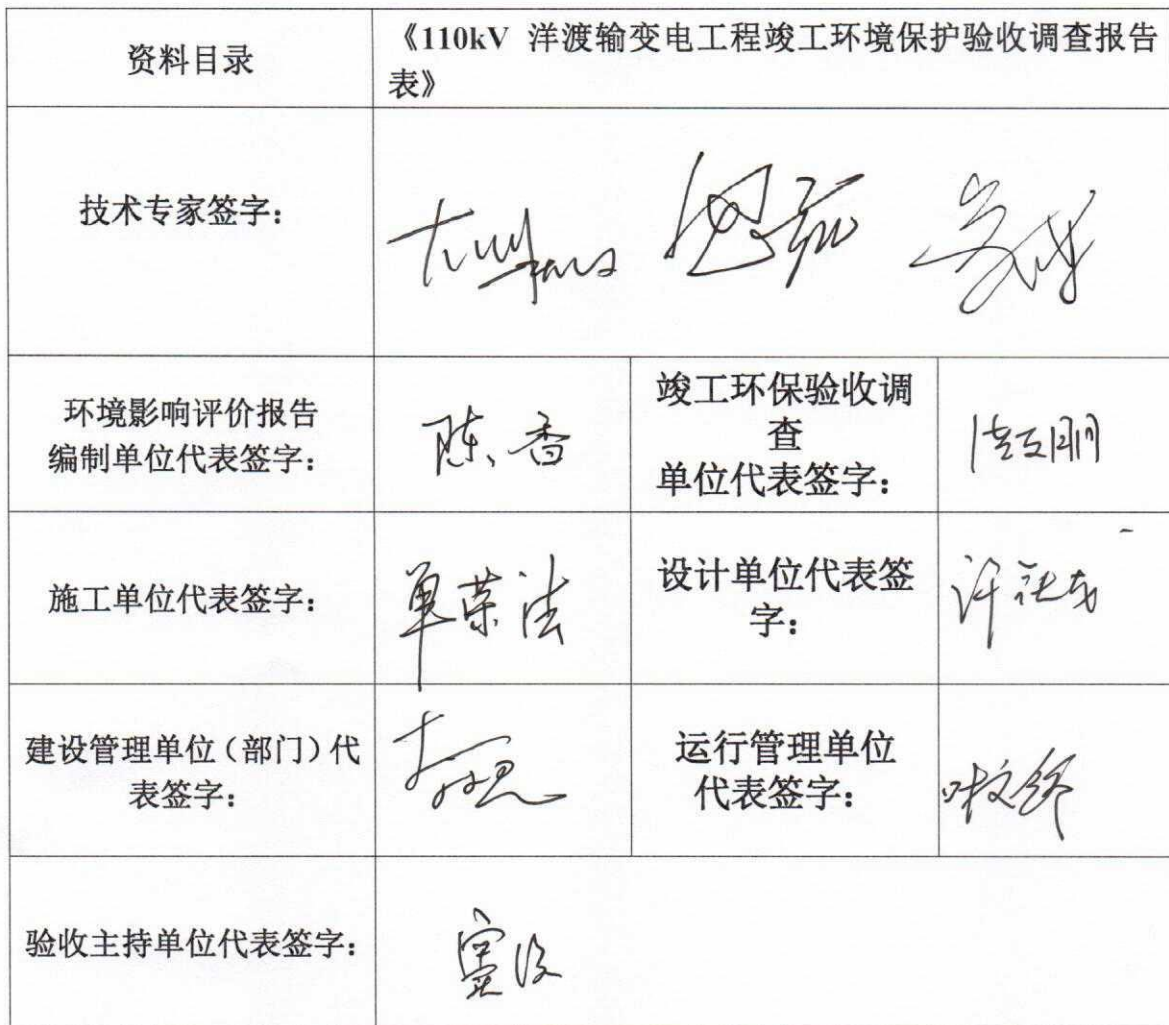 资料目录
《110kV 洋渡输变电工程竣工环境保护验收调查报告
表》
技术专家签字：
环境影响评价报告
编制单位代表签字：
陈香
竣工环保验收调
查
单位代表签字：
施工单位代表签字：
单荣法
设计单位代表签
字：
建设管理单位（部门）代
表签字：
运行管理单位
代表签字：
验收主持单位代表签字：